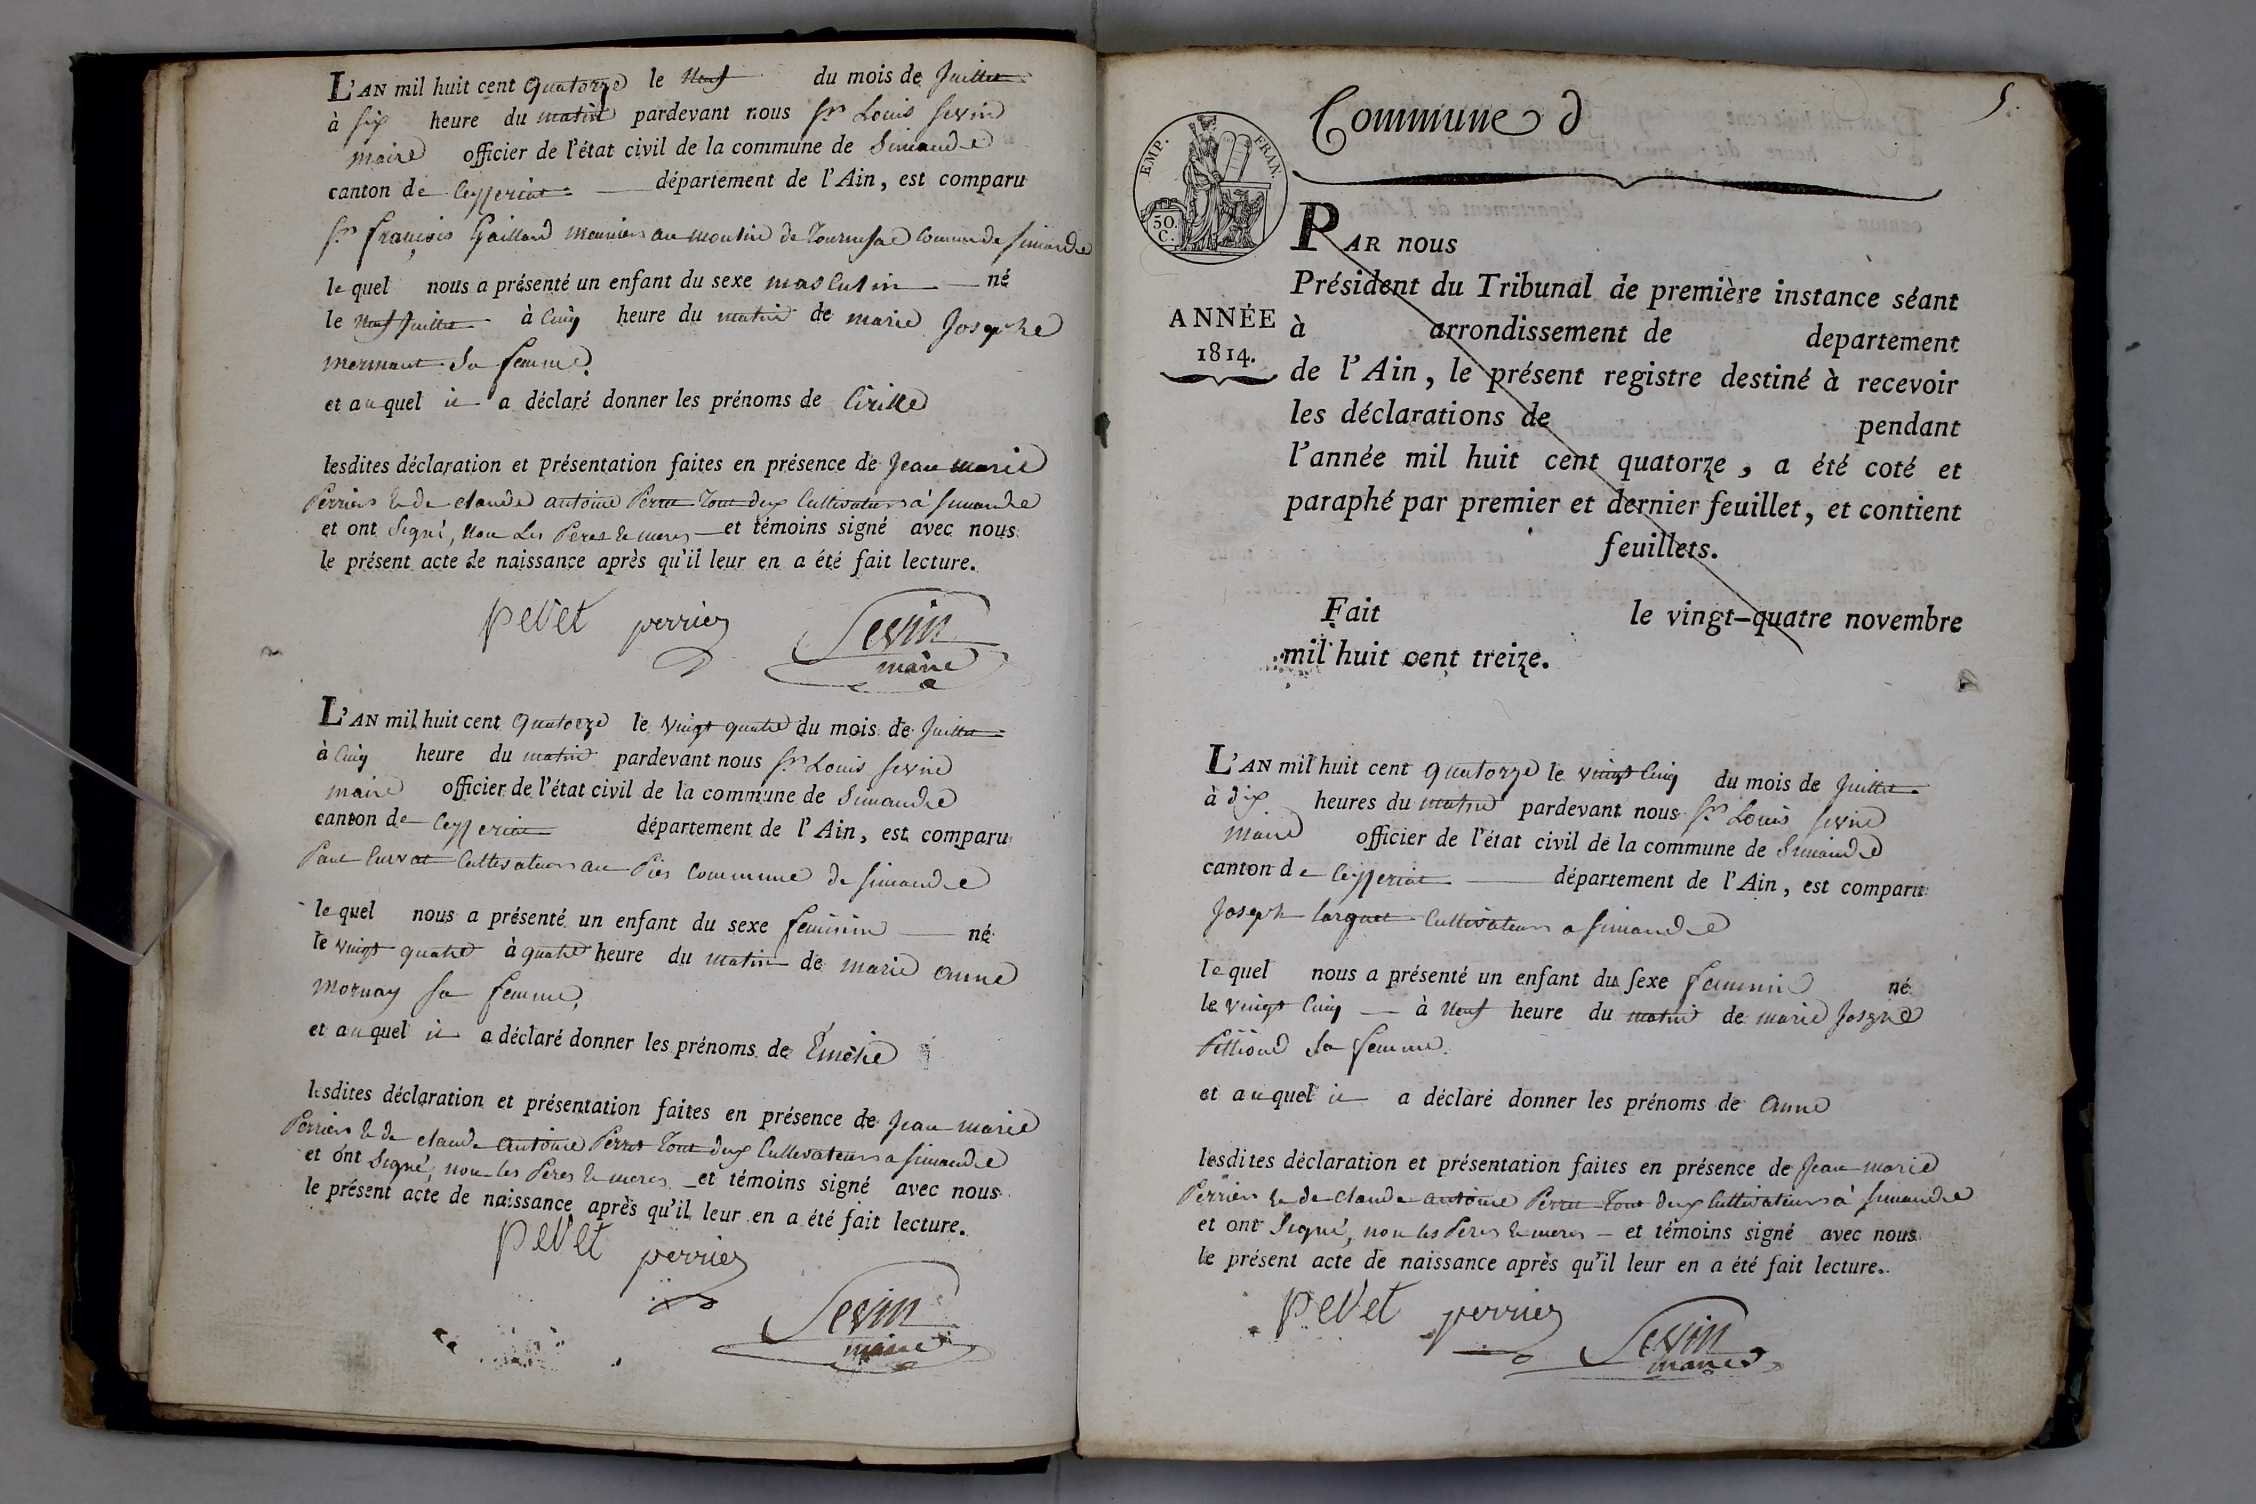 L'AN mil huit cent quatorze le neuf du mois de Juillet
à six heure du matin pardevant nous Sr. Louis Sevin
maire officier de l'état civil de la commune de Simandre
canton de Ceyzeriat département de l'Ain, est comparu
Sr. françois Gaillard meunier au moulin de Commune de Simandre
lequel nous a présenté un enfant du sexe masculin né
le neuf Juillet à Cinq heure du matin de marie Josephe
mermant Sa femme.
et auquel il a déclaré donner les prénoms de Cirille
lesdites déclaration et présentation faites en présence de Jean marie
Perrier & de claude antoine Tout deux Cultivateurs à Simandre
et ont Signé, non Les Peres & meres et témoins signé avec nous
le présent acte de naissance après qu'il leur en a été fait lecture.
pevet perrier Sevin
maire
L'AN mil huit cent quatorze le vingt quatre du mois de Juillet
à Cinq heure du matin pardevant nous Sr. Louis Sevin
maire officier de l'état civil de la commune de Simandre
canton de Ceyzeriat département de l'Ain, est comparu
Paul Curvat Cultivateur au Commune de Simandre
lequel nous a présenté un enfant du sexe feminin né
le vingt quatre à quatre heure du matin de marie anne
mornay sa femme,
et auquel il a déclaré donner les prénoms de Emelie
lesdites déclaration et présentation faites en présence de Jean marie
Perrier & de claude antoine Tout deux Cultivateurs a Simandre
et ont Signé, non les Peres & meres et témoins signé avec nous
le présent acte de naissance après qu'il leur en a été fait lecture.
pevet perrier
Sevin
maire
5.
Commune d
EMP. FRAN.
50.
C.
ANNÉE
1814.
PAR nous
Président du Tribunal de première instance séant
à arrondissement de departement
de l'Ain, le présent registre destiné à recevoir
les déclarations de pendant
l'année mil huit cent quatorze, a été coté et
paraphé par premier et dernier feuillet, et contient
feuillets.
Fait le vingt-quatre novembre
mil huit cent treize.
L'AN mil huit cent quatorze le vingt Cinq du mois de Juillet
à dix heures du matin pardevant nous Sr. Louis Sevin
maire officier de l'état civil de la commune de Simandre
canton de Ceyzeriat département de l'Ain, est comparu
Joseph Cultivateur a Simandre
lequel nous a présenté un enfant du sexe feminin né
le vingt Cinq à neuf heure du matin de marie Josephe
Sa femme.
et auquel il a déclaré donner les prénoms de anne
lesdites déclaration et présentation faites en présence de Jean marie
Perrier & de Claude antoine Tout deux Cultivateurs à Simandre
et ont Signé, non les Peres & meres et témoins signé avec nous
le présent acte de naissance après qu'il leur en a été fait lecture.
pevet perrier Sevin
maire